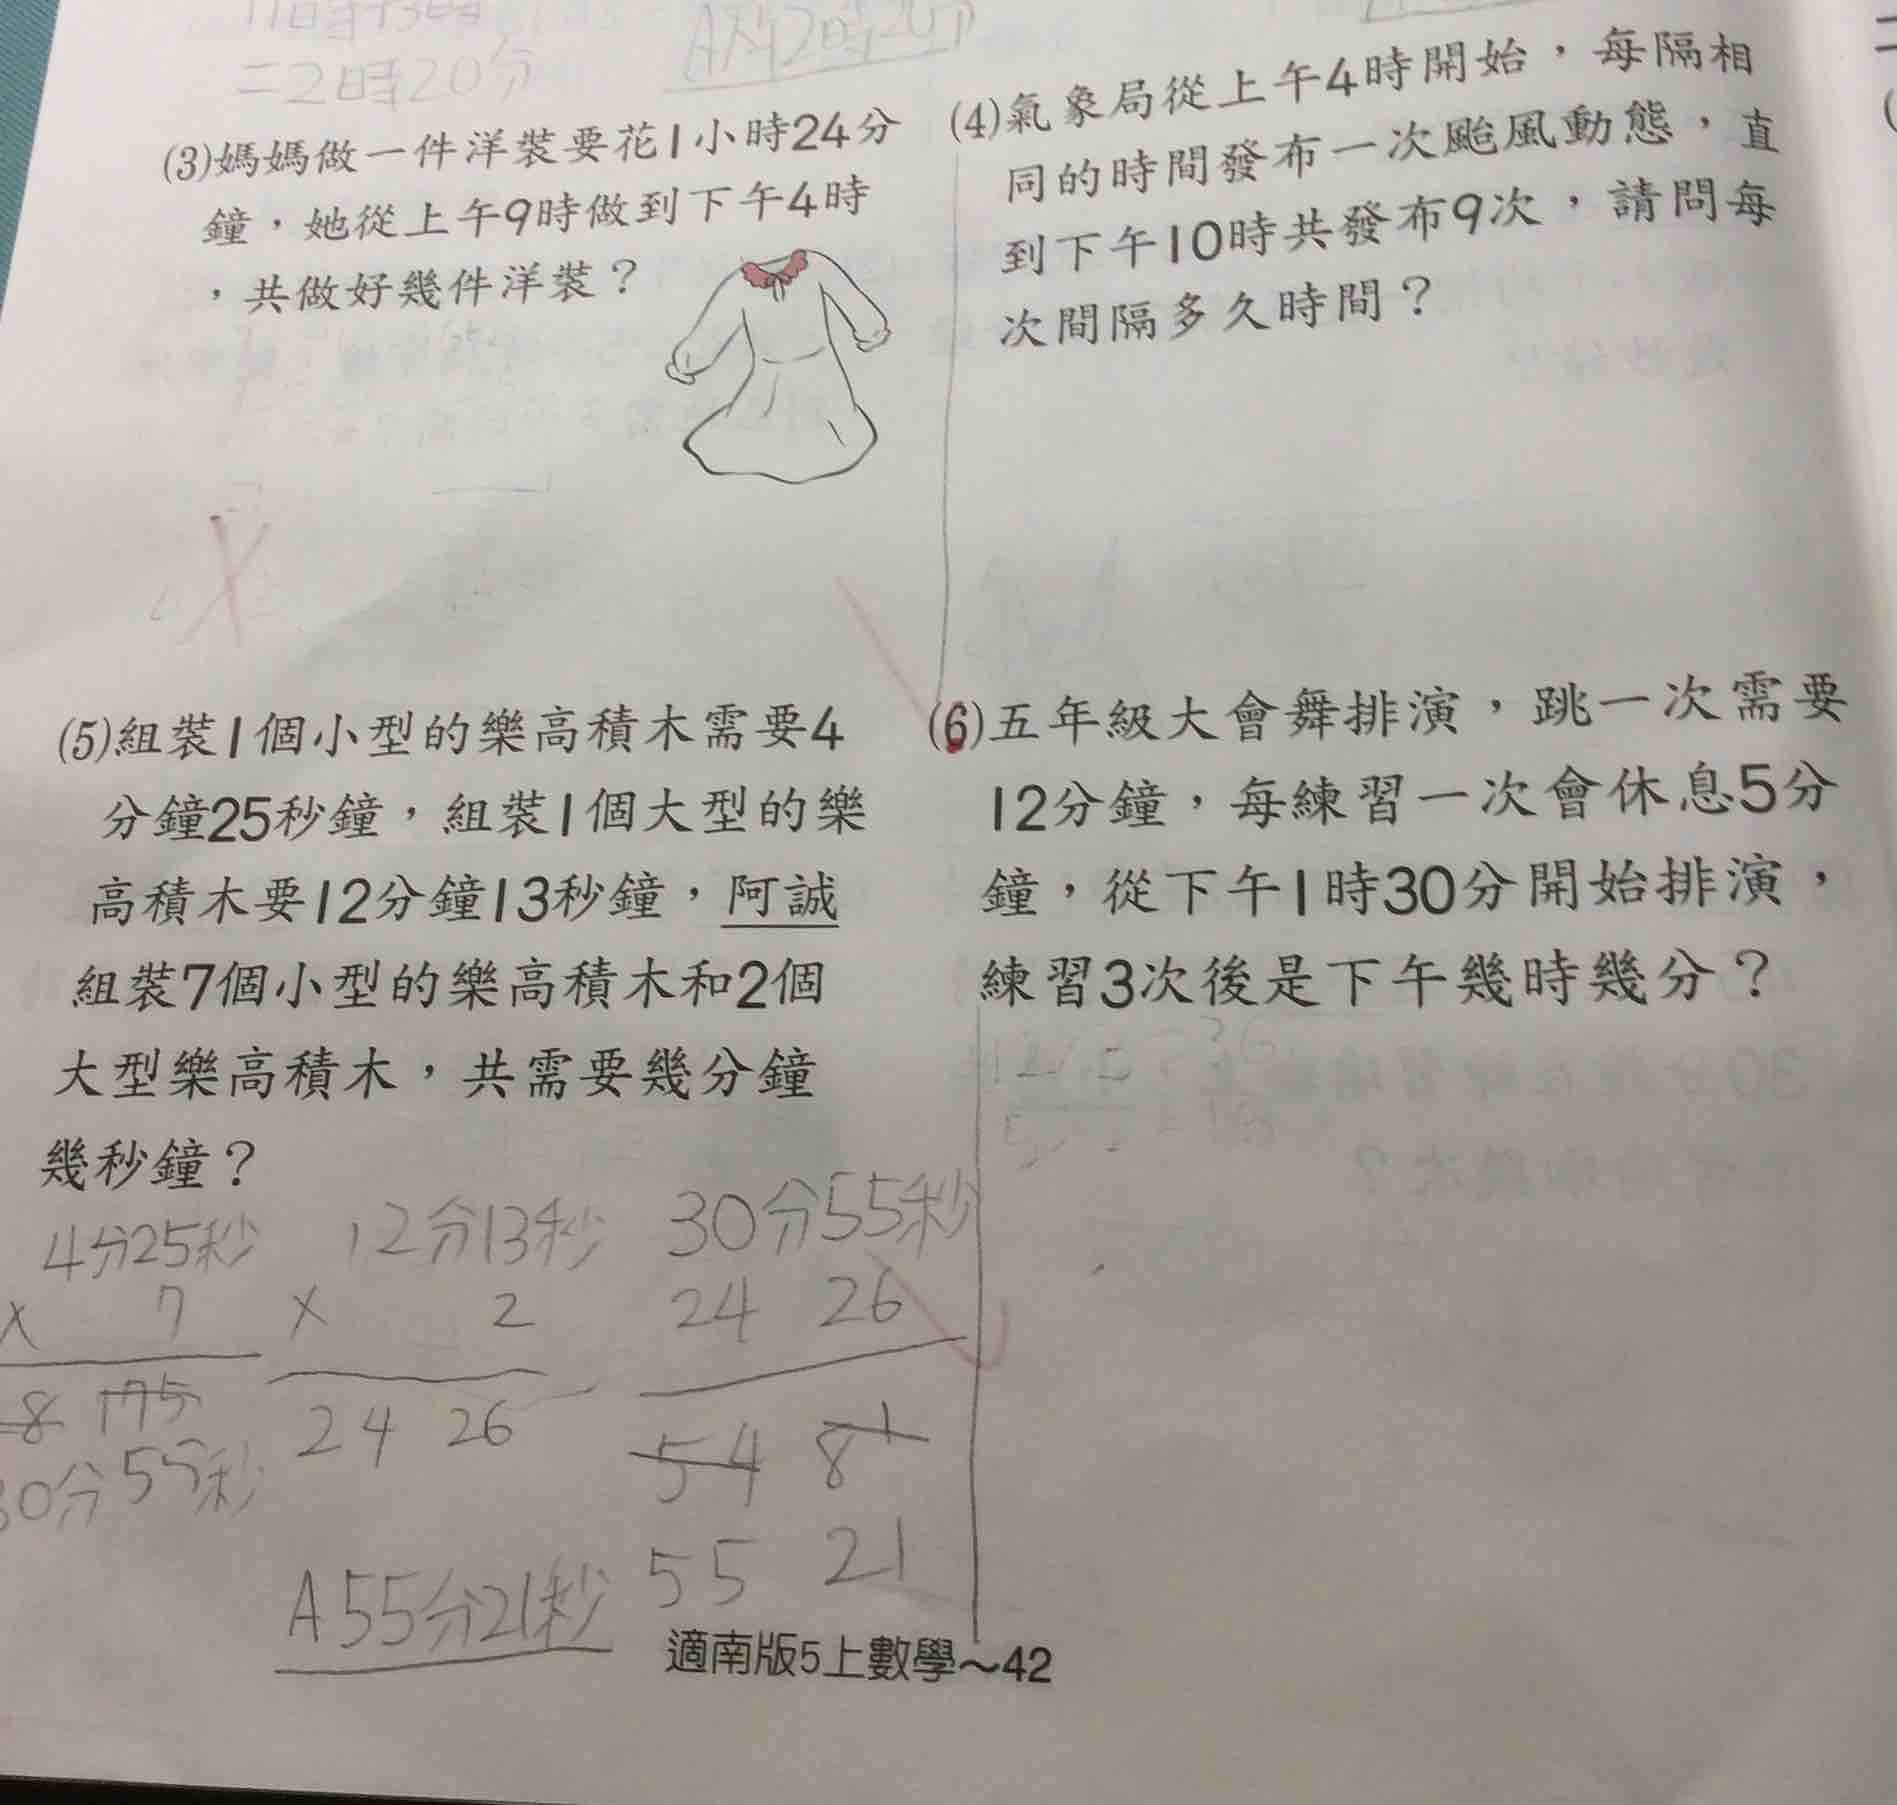 11時73時
=2時20分
A為2時20分
(3)媽媽做一件洋裝要花1小時24分
鐘，她從上午9時做到下午4時
，共做好幾件洋裝？
(4)氣象局從上午4時開始，每隔相
同的時間發布一次颱風動態，直
到下午10時共發布9次，請問每
次間隔多久時間？
(5)組裝1個小型的樂高積木需要4
分鐘25秒鐘，組裝1個大型的樂
高積木要12分鐘13秒鐘，阿誠
組裝7個小型的樂高積木和2個
大型樂高積木，共需要幾分鐘
幾秒鐘？
4分25秒
× 7
8 175
30分55秒
12分13秒
× 2
24 26
30分55秒
24 26
54 81
55 21
A55分21秒
(6)五年級大會舞排演，跳一次需要
12分鐘，每練習一次會休息5分
鐘，從下午1時30分開始排演，
練習3次後是下午幾時幾分？
適南版5上數學～42